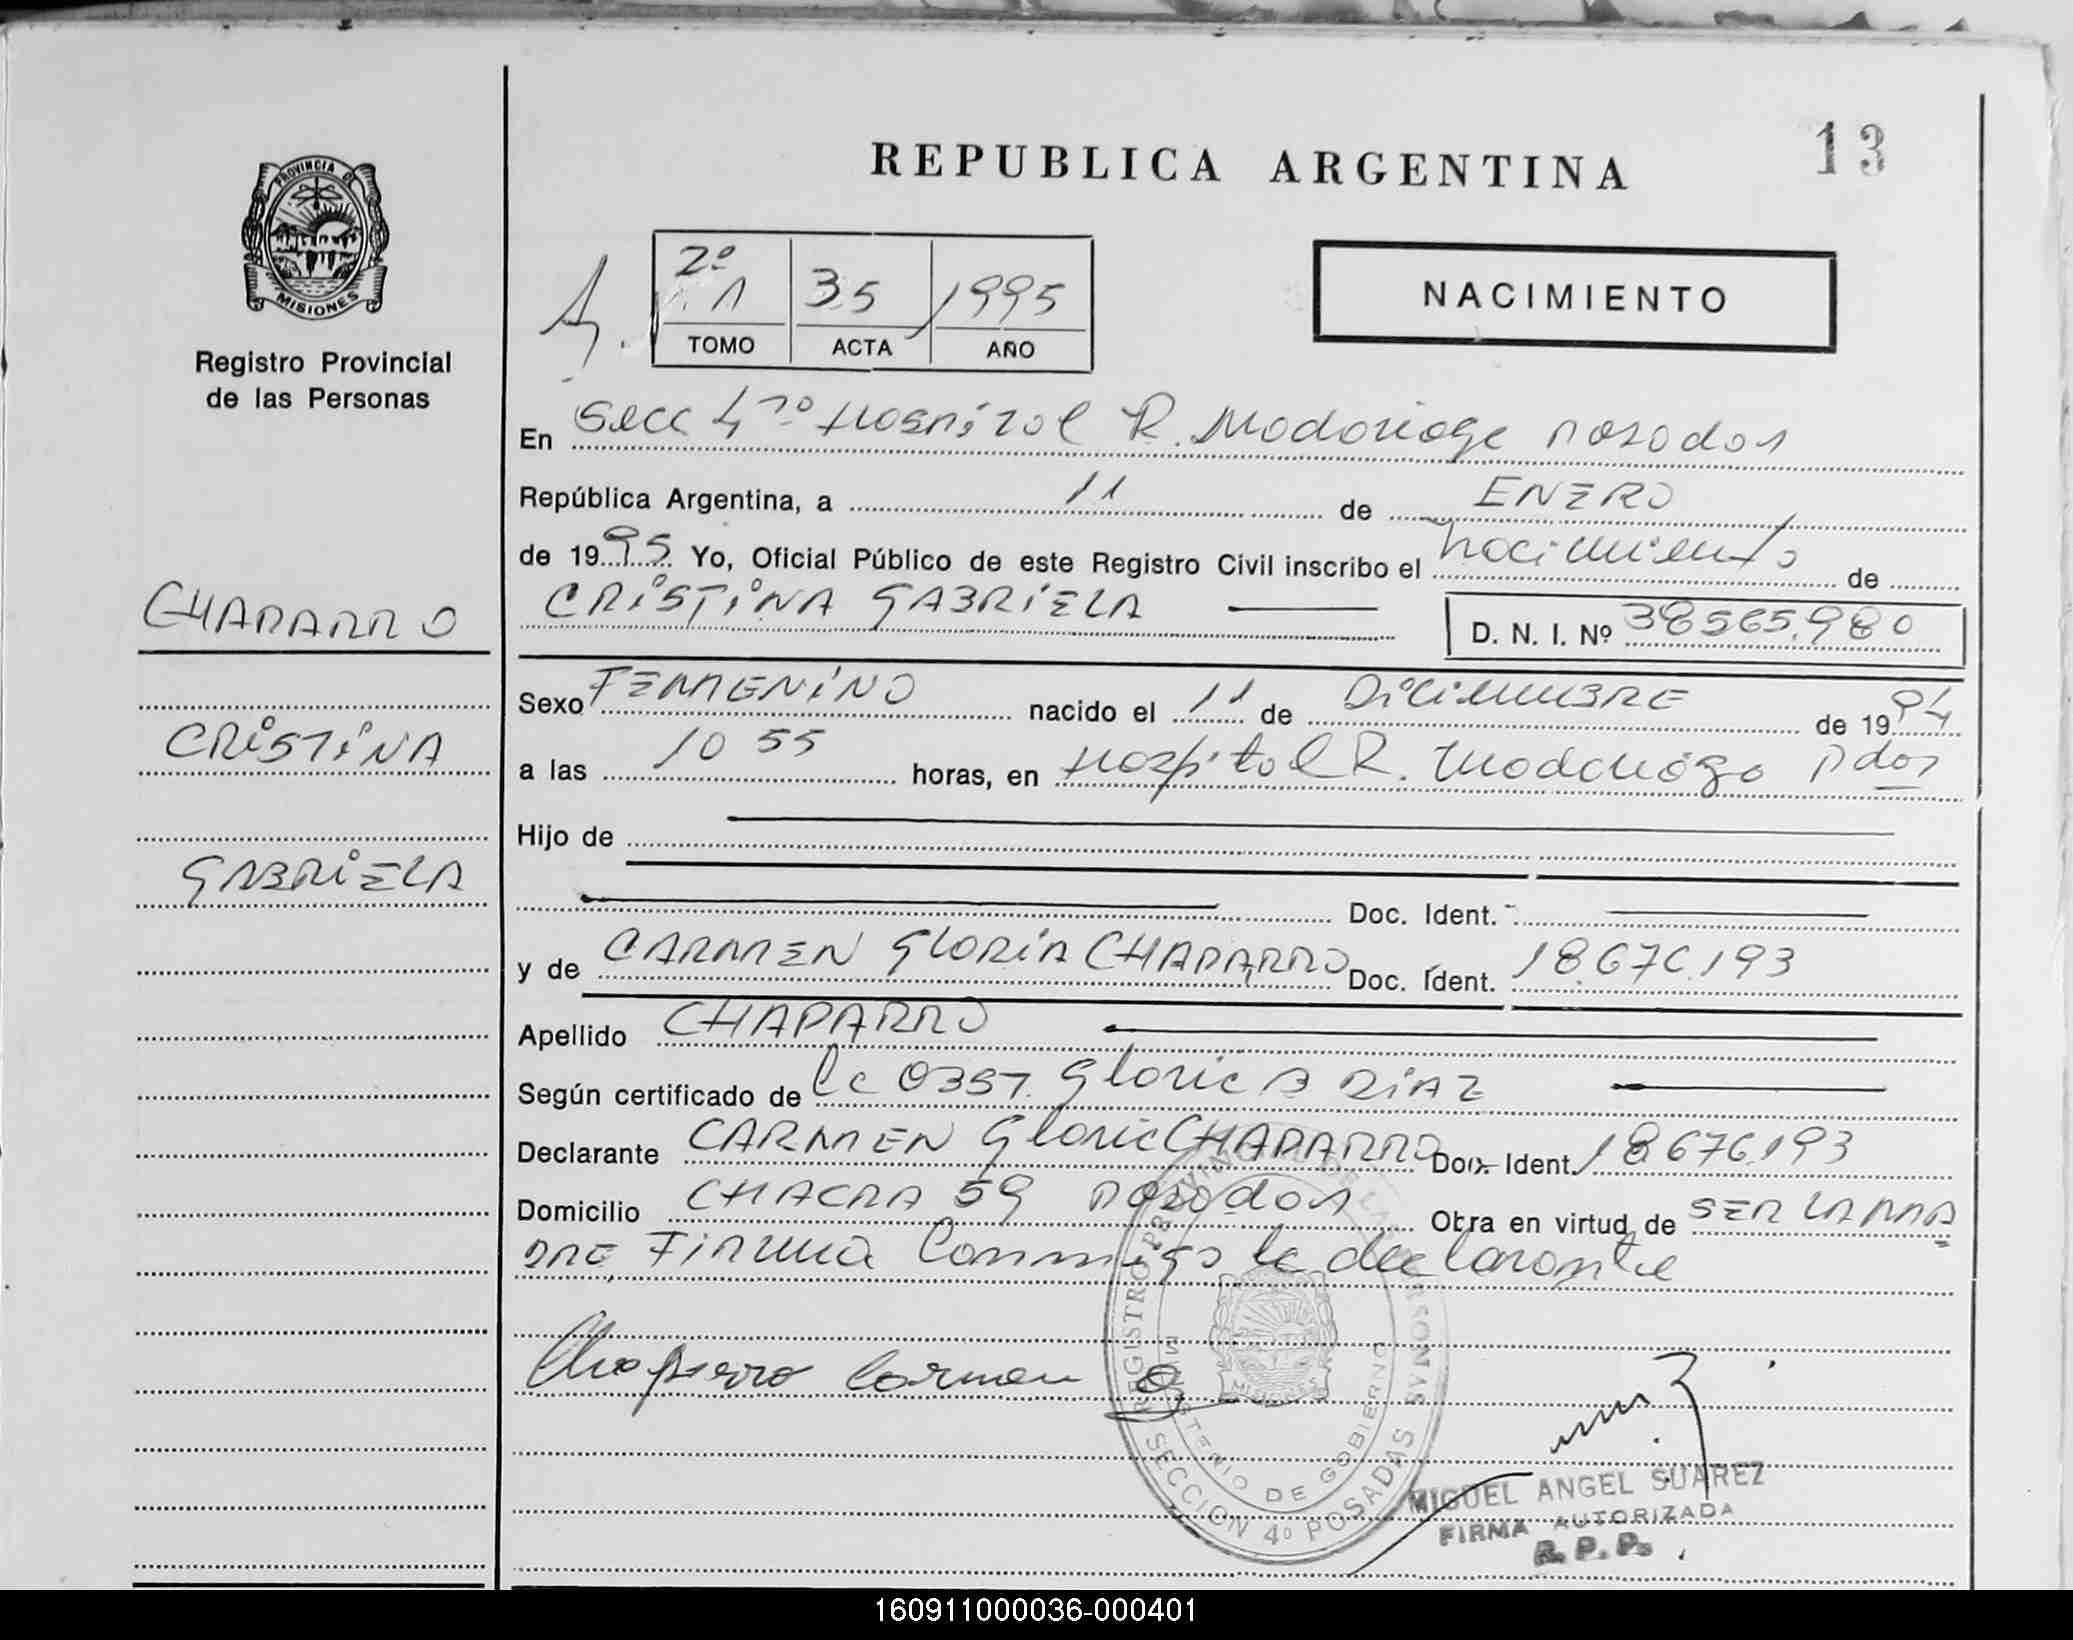 13
REPUBLICA ARGENTINA
PROVINCIA DE
MISIONES
Registro Provincial
de las Personas
2º
1 35 1995
TOMO ACTA AÑO
NACIMIENTO
En Secc 4ta Hospital R. Madariaga Posadas
República Argentina, a 11 de ENERO
de 1995 Yo, Oficial Público de este Registro Civil inscribo el nacimiento de
CRISTINA GABRIELA D. N. I. Nº 38565.980
CHAPARRO
CRISTINA
GABRIELA
Sexo FEMENINO nacido el 11 de DICIEMBRE de 1994
a las 10 55 horas, en Hospital R. Madariaga Pdas
Hijo de
Doc. Ident.
y de CARMEN GLORIA CHAPARRO Doc. Ident. 18.676.193
Apellido CHAPARRO
Según certificado de la OBST. Gloria B DIAZ
Declarante CARMEN Gloria CHAPARRO Doc. Ident. 18.676.193
Domicilio CHACRA 59 Posadas Obra en virtud de SER LA MA
DRE, Firma Conmigo la declarante
Chaparro Carmen G
REGISTRO PROVINCIAL DE LAS PERSONAS
MINISTERIO DE GOBIERNO
MISIONES
SECCION 4º POSADAS
MIGUEL ANGEL SUAREZ
FIRMA AUTORIZADA
R. P. P.
160911000036-000401